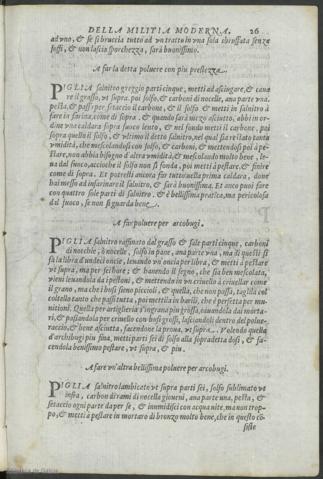 DELLA MILITIA MODERNA. 26
ad vno, & se si bruccia tutto ad vn tratto in vna sola chiuffata senza
soffi, & non lascia sporchezza, sarà buonissimo.
A far la detta poluere con piu prestezza.
PIGLIA salnitro greggio parti cinque, metti ad asciugare, & caua
re il grasso, vt supra. poi solfo, & carboni di nocelle, ana parte vna,
pesta, & passi per setaccio il carbone, & il solfo & metti in salnitro à
fare in farina, come di sopra, & quando sarà mezo asciutto, abbi in or-
dine vna caldara sopra fuoco lento, & nel fondo metti il carbone, poi
sopra quello il solfo, & vltimo il detto salnitro, nel qual sia restato tanta
vmidità, che mescolandosi con solfo, & carboni, & mettendosi poi à pe-
stare, non abbia bisogno d'altra vmidità, & mescolando molto bene, le-
ua dal fuoco, acciochè il solfo non si fonda, poi metti à pestare, & finire
come di sopra. Et potresti ancora far tutto nella prima caldara, doue
hai messo ad infarinare il salnitro, & sarà buonissima. Et anco puoi fare
con quattro sole parti di salnitro, & è bellissima pratica, ma pericolosa
dal fuoco, se non si guarda bene.
A far poluere per arcobugi.
PIGLIA salnitro raffinato dal grasso & sale parti cinque, carboni
di nocchie, ò nocelle, solfo in pane, ana parte vna, ma di questi si
fà la libra d'undeci oncie, leuando vn oncia per libra, & metti à pestare
vt supra, ma per sei hore; & hauendo il segno, che sia ben mescolata,
vieni leuandola da i pestoni, & mettendo in vn criuello à criuellar come
il grano, ma che i bosi sieno piccioli, & quella, che non passa, taglia col
coltello tanto che passi tutta, poi mettila in barili, che è perfetta per mu-
nitioni. Quella per artiglieria s'ingrana piu grossa, cauandola dai morta-
ri, & passandola per criuello con bosi grossi, lasciandoli dentro del polue-
raccio, & bene asciutta, facendone la proua, vt supra. Volendo quella
d'archibugi piu fina, metti parti sei di solfo alla sopradetta dosi, & fa-
cendola benissimo pestare, vt supra, & piu.
A fare vn'altra bellissima poluere per arcobugi.
PIGLIA salnitro lambicato vt supra parti sei, solfo sublimato vt
infra, carbon di rami di nocella giouani, ana parte una, pesta, &
setaccio ogni parte da per se, & inumidisci con acqua nite, ma non trop-
po, & metti à pestare in mortaro di bronzo molto bene, che in questo cō
siste